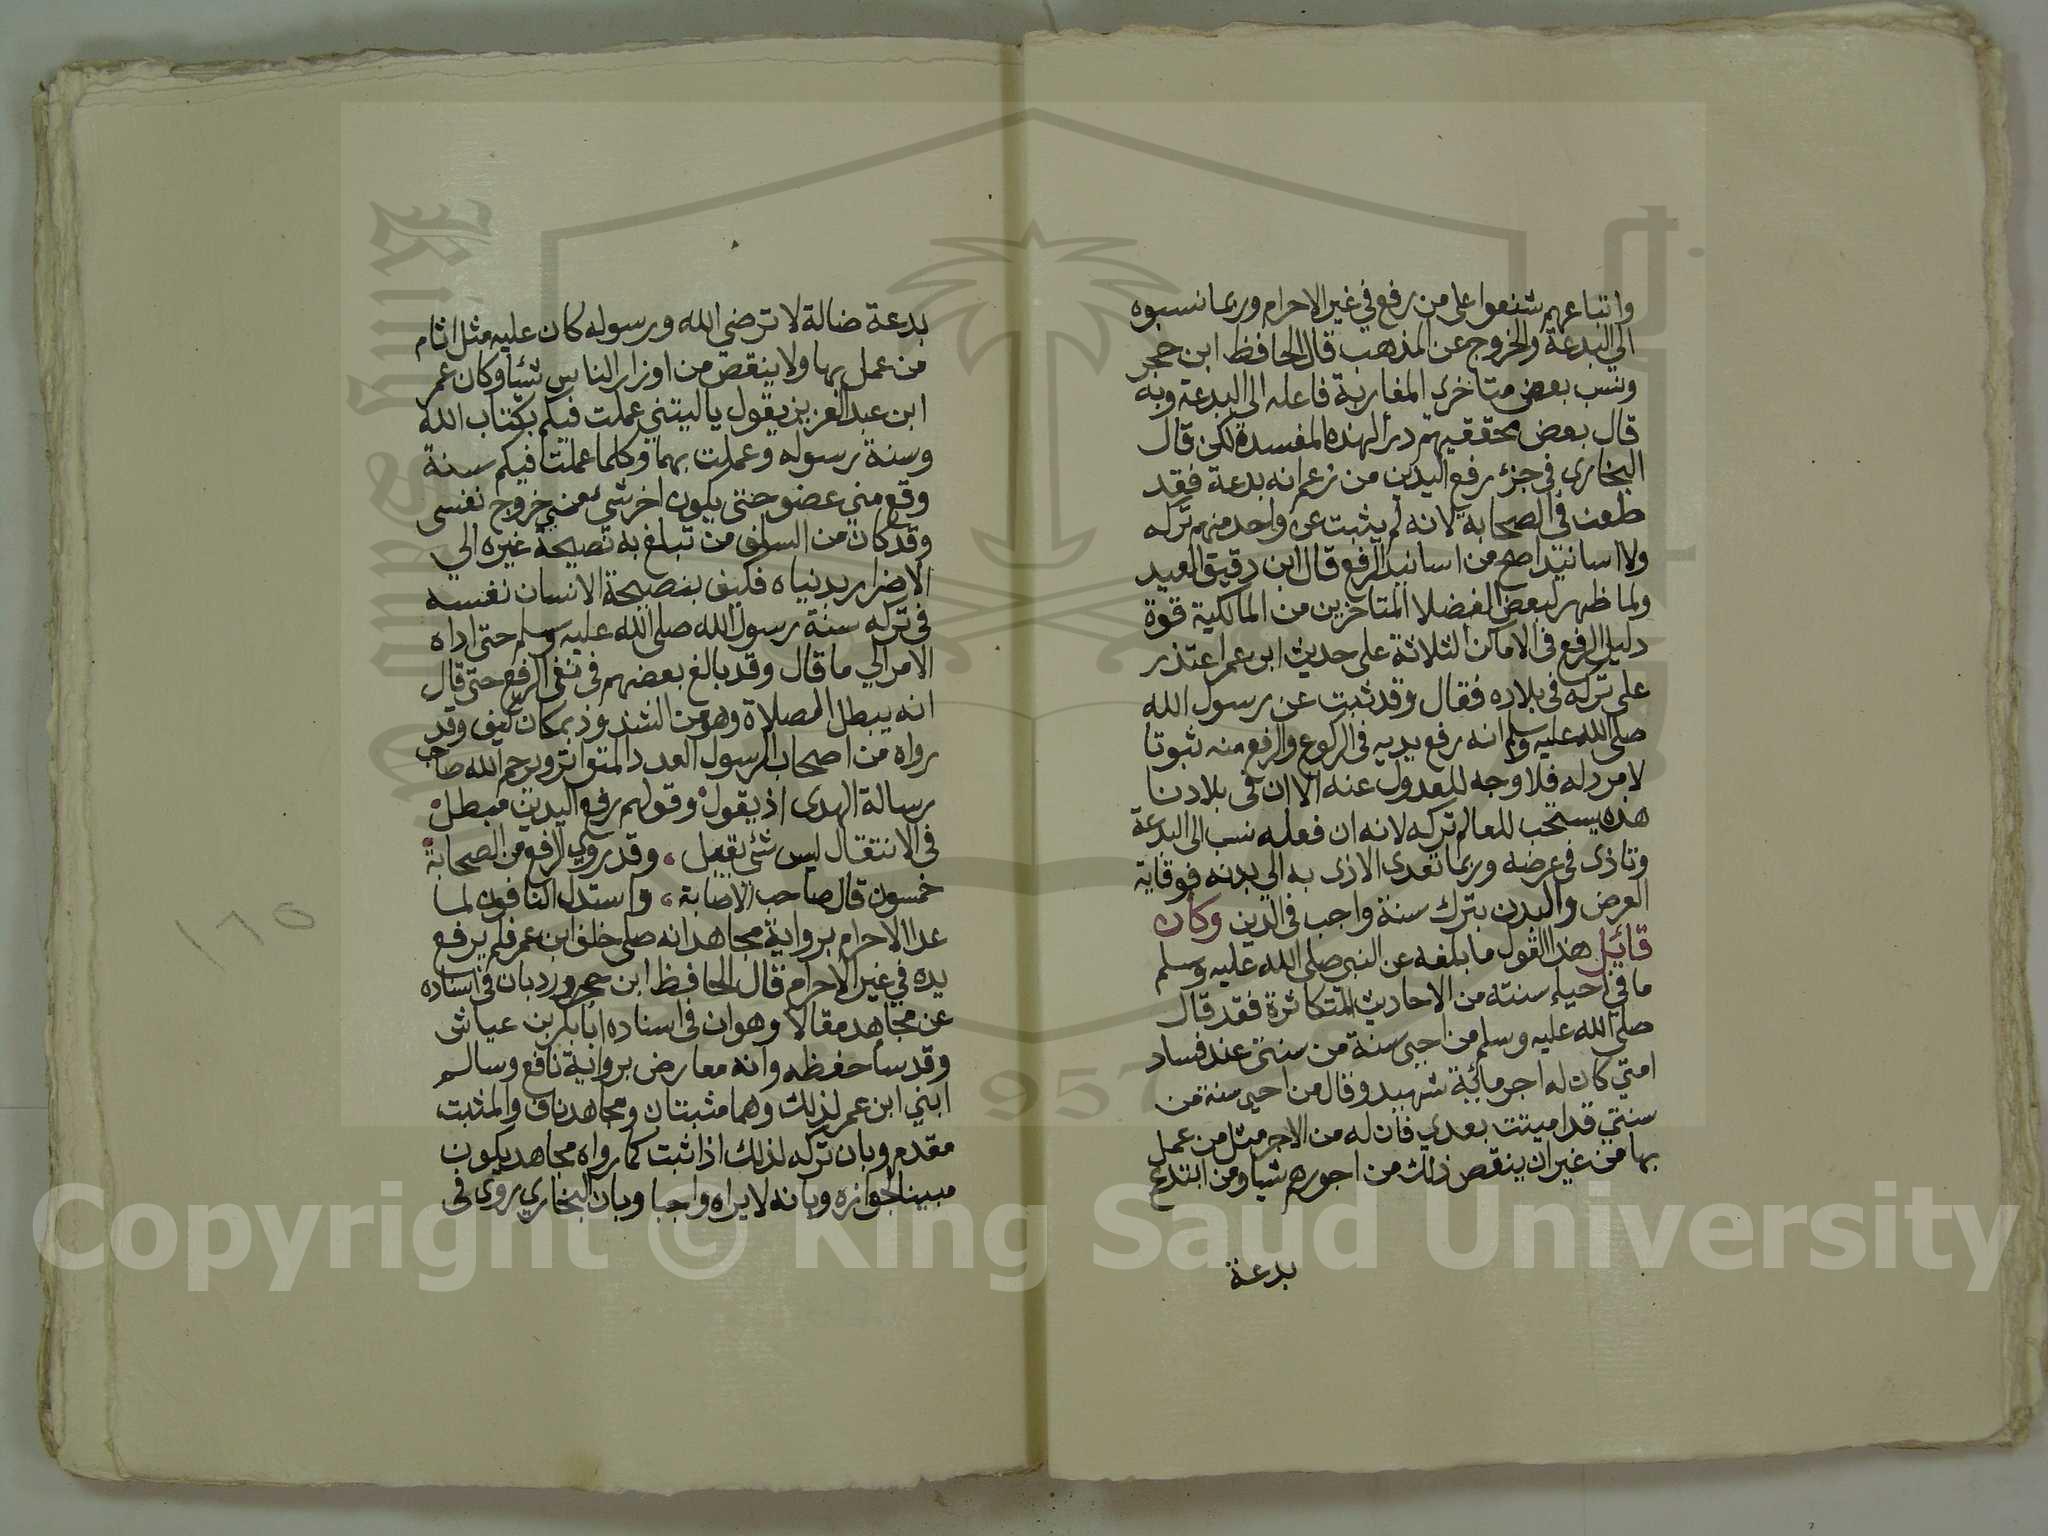 واتباعهم شنعوا على من رفع في غير الاحرام وربما نسبوه
الي البدعة والخروج عن المذهب قال الحافظ ابن حجر
ونسب بعض متاخري المغاربة فاعله الي البدعة وبه
قال بعض محققيهم درأ لهذه المفسدة لكن قال
البخاري في جزء رفع اليدين من زعم انه بدعة فقد
طعن في الصحابة لانه لم يثبت عن واحد منهم تركه
ولا اسانيد اصح من اسانيد الرفع قال ابن دقيق العيد
ولما ظهر لبعض الفضلا المتاخرين من المالكية قوة
دليل الرفع في الاماكن الثلاثة على حديث ابن عمر اعتذر
على تركه في بلاده فقال وقد ثبت عن رسول الله
صلى الله عليه وسلم انه رفع يديه في الركوع والرفع منه ثبوتا
لا مرد له فلا وجه للعدول عنه الا ان في بلادنا
هذه يستحب للعالم تركه لانه ان فعله نسب الى البدعة
وتاذى في عرضه وربما تعدى الاذى به الي بدنه فوقاية
العرض والبدن بترك سنة واجب في الدين وكان
قائل هذا القول ما بلغه عن النبي صلى الله عليه وسلم
ما في احياء سنته من الاحاديث المتكاثرة فقد قال
صلى الله عليه وسلم من احيى سنة من سنتي عند فساد
امتي كان له اجر مائية شهيد وقال من احيى سنة من
سنتي قد اميتت بعدي فان له من الاجر مثل من عمل
بها من غير ان ينقص ذلك من اجورهم شيا ومن ابتدع
بدعة
بدعة ضالة لا ترضي الله ورسوله كان عليه مثل اثام
من عمل بها ولا ينقص من اوزار الناس شئيا وكان عمر
ابن عبد العزيز يقول يا ليتني عملت فيكم بكتاب الله
وسنة رسوله وعملت بهما وكلما عملت فيكم سنة
وقع مني عضو حتى يكون اخر شيء مني خروج نفسى
وقد كان من السلف من تبلغ به نصيحة غيره الي
الاضرار بدنياه فكيف بنصيحة الانسان نفسه
في تركه سنة رسول الله صلى الله عليه وسلم حتى اداه
الامر الي ما قال وقد بالغ بعضهم في نفى الرفع حتى قال
انه يبطل الصلاة وهو من الشذوذ بمكان كيف وقد
رواه من اصحاب الرسول العدد المتواتر ويرحم الله صاحب
رسالة الهدى اذ يقول وقولهم رفع اليدين مبطل
في الانتقال ليس شئي يقبل وقد روي الرفع من الصحابة
خمسون قال صاحب الاصابة واستدل النافون لما
عدا الاحرام برواية مجاهد انه صلى خلف ابن عمر فلم يرفع
يده في غير الاحرام قال الحافظ ابن حجر ورد بان في اسناده
عن مجاهد مقالا وهو ان في اسناده ابا بكر بن عياش
وقد سأ حفظه وانه معارض برواية نافع وسالم
ابني ابن عمر لذلك وهما مثبتان ومجاهد ناف والمثبت
مقدم وبان تركه لذلك اذا ثبت كما رواه مجاهد يكون
مبينا لجوازه وبانه لا يراه واجبا وبان البخاري روى في
١٦٥
Copyright © King Saud University
1957